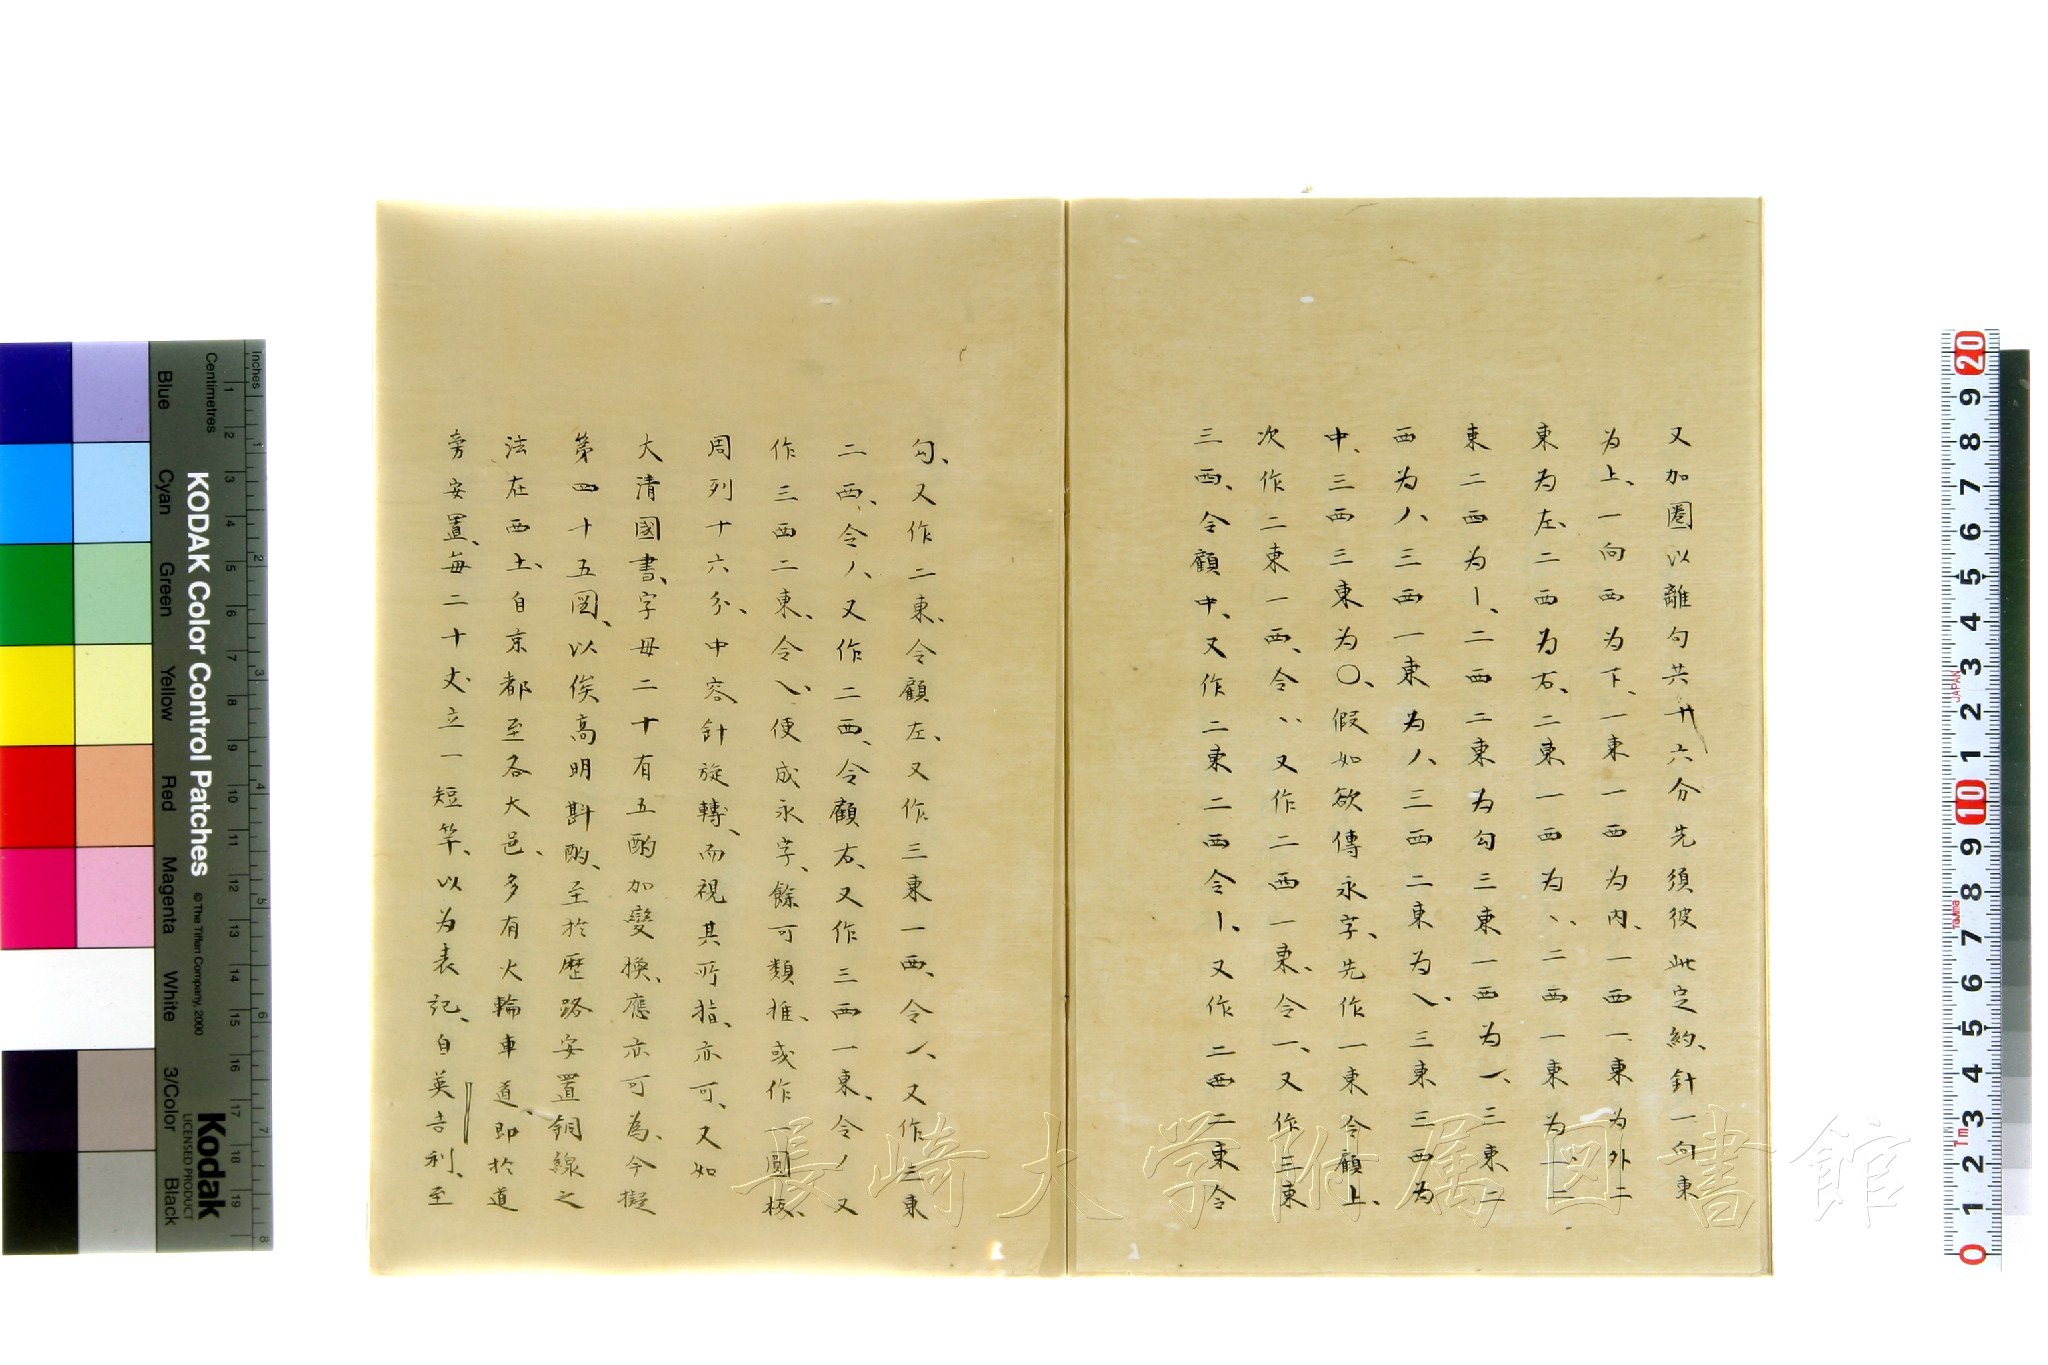 又加圏以離句共廿六分先須彼此定約、針一向東
為上、一向西為下、一東一西為内、一西一東為外二
東為左、二西為右、二東一西為丶、二西一東為一、二
東二西為丨、二西二東為勾三東一西為㇀、三東二
西為丿、三西一東為丿、三西二東為乀、三東三西為
中、三西三東為〇、假如欲傳永字、先作一東令顧上、
次作二東一西、令丶又作二西一東、令一、又作三東
三西、令顧中、又作二東二西令丨、又作二西二東令
勾、又作二東、令顧左、又作三東一西、令㇀、又作三東
二西、令丿、又作二西、令顧右、又作三西一東、令丿又
作三西二東、令乀、便成永字、餘可類推、或作一圓板、
周列十六分、中容針旋轉、而視其所指、亦可、又如
大清國書、字母二十有五酌加變換、應亦可為、今擬
第四十五図、以俟高明斟酌、至於歷路安置銅線之
法在西土、自京都至各大邑、多有火輪車道、即於道
旁安置、每二十丈立一短竿、以為表記、自英吉利、至
長崎大学附属図書館
KODAK Color Control Patches
© The Tiffen Company, 2000
Kodak
LICENSED PRODUCT
Inches
Centimetres
Blue
Cyan
Green
Yellow
Red
Magenta
White
3/Color
Black
1 2 3 4 5 6 7 8 9 10 11 12 13 14 15 16 17 18 19
1 2 3 4 5 6 7 8
20 9 8 7 6 5 4 3 2 1 10 9 8 7 6 5 4 3 2 1 0
JAPAN
1m